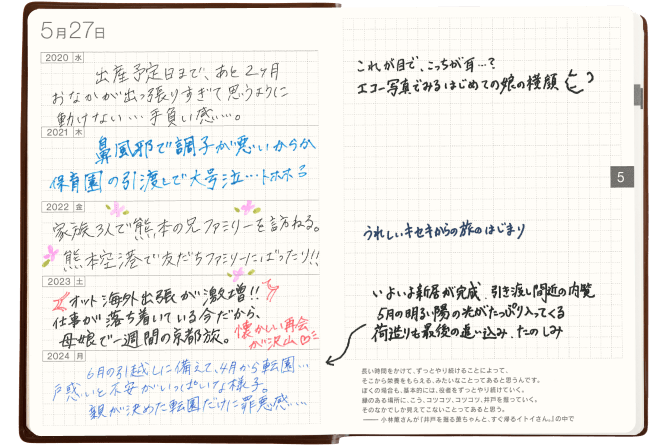 5月27日
2020 水
出産予定日まで、あと2ヶ月
おなかが出っ張りすぎて思うように
動けない…手負い感…。
2021 木
鼻風邪で調子が悪いからか
保育園の引渡しで大号泣…トホホ
2022 金
家族3人で熊本の兄ファミリーを訪ねる。
熊本空港で友だちファミリーにばったり!!
2023 土
オット海外出張が激増!!
仕事が落ち着いている今だから、
母娘で一週間の京都旅。
懐かしい再会
が沢山♡
2024 月
6月の引越しに備えて、4月から転園…
戸惑いと不安がいっぱいな様子。
親が決めた転園だけに罪悪感……
これが目で、こっちが耳…?
エコー写真でみるはじめての娘の横顔
5
うれしいキセキからの旅のはじまり
いよいよ新居が完成、引き渡し間近の内覧
5月の明るい陽の光がたっぷり入ってくる
荷造りも最後の追い込み、たのしみ
長い時間をかけて、ずっとやり続けることによって、
そこから栄養をもらえる、みたいなことってあると思うんです。
ぼくの場合も、基本的には、役者をずっとやり続けていく。
縁のある場所に、こう、コツコツ、コツコツ、井戸を掘っていく。
そのなかでしか見えてこないことってあると思う。
—— 小林薫さんが『井戸を掘る薫ちゃんと、すぐ帰るイトイさん。』の中で